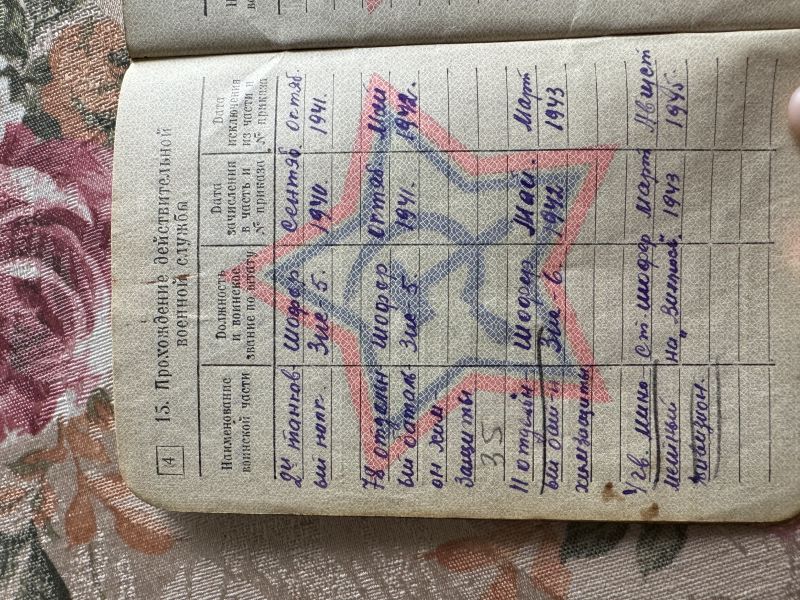 4
15. Прохождение действительной
военной службы
Наименование
воинской части
Должность
и воинское
звание по штату
Дата
зачисления
в часть и
№ приказа
Дата
исключения
из части и
№ приказа
24 танков Шофер Сентяб. Октяб.
ый полк. Зис 5. 1940. 1941.
78 отдельн Шофер Октяб Май
ый баталь Зис 5. 1941. 1942.
он хим
защиты
35
11 отдельн Шофер Май. Март
ый бат-н Зис-6. 1942. 1943
химзащиты
1/гв. мино Ст шофер март Август
метный на "Виллисе" 1943 1945.
дивизион.